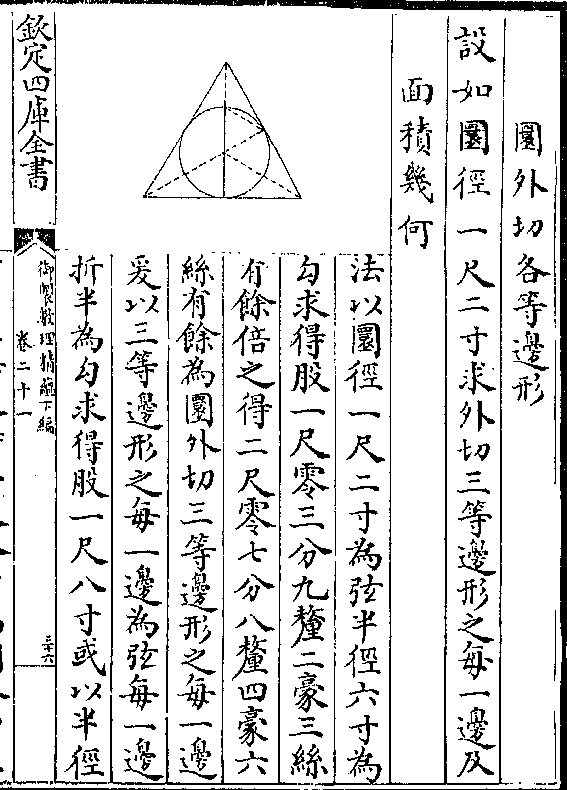 圜外切各等邊形
設如圜徑一尺二寸求外切三等邊形之每一邊及
面積幾何
法以圜徑一尺二寸為弦半徑六寸為
勾求得股一尺零三分九釐二豪三絲
有餘倍之得二尺零七分八釐四豪六
絲有餘為圜外切三等邊形之每一邊
爰以三等邊形之每一邊為弦每一邊
折半為勾求得股一尺八寸或以半徑
欽定四庫全書
御製數理精蘊下編
卷二十一
三十六